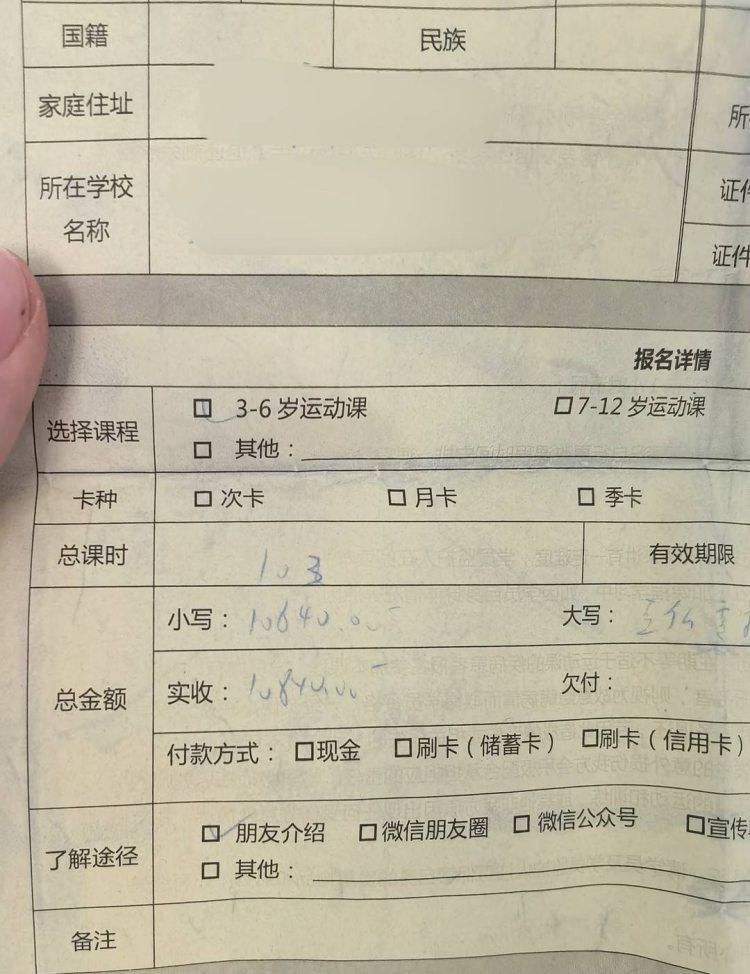 国籍 民族
家庭住址
所在学校
名称
证件
证件
报名详情
选择课程 □ 3-6 岁运动课 □ 7-12 岁运动课
□ 其他：
卡种 □ 次卡 □ 月卡 □ 季卡
总课时 103 有效期限
总金额 小写： 大写：
实收： 欠付：
付款方式： □现金 □刷卡（储蓄卡） □刷卡（信用卡）
了解途径 ☑ 朋友介绍 □ 微信朋友圈 □ 微信公众号 □宣传
□ 其他：
备注